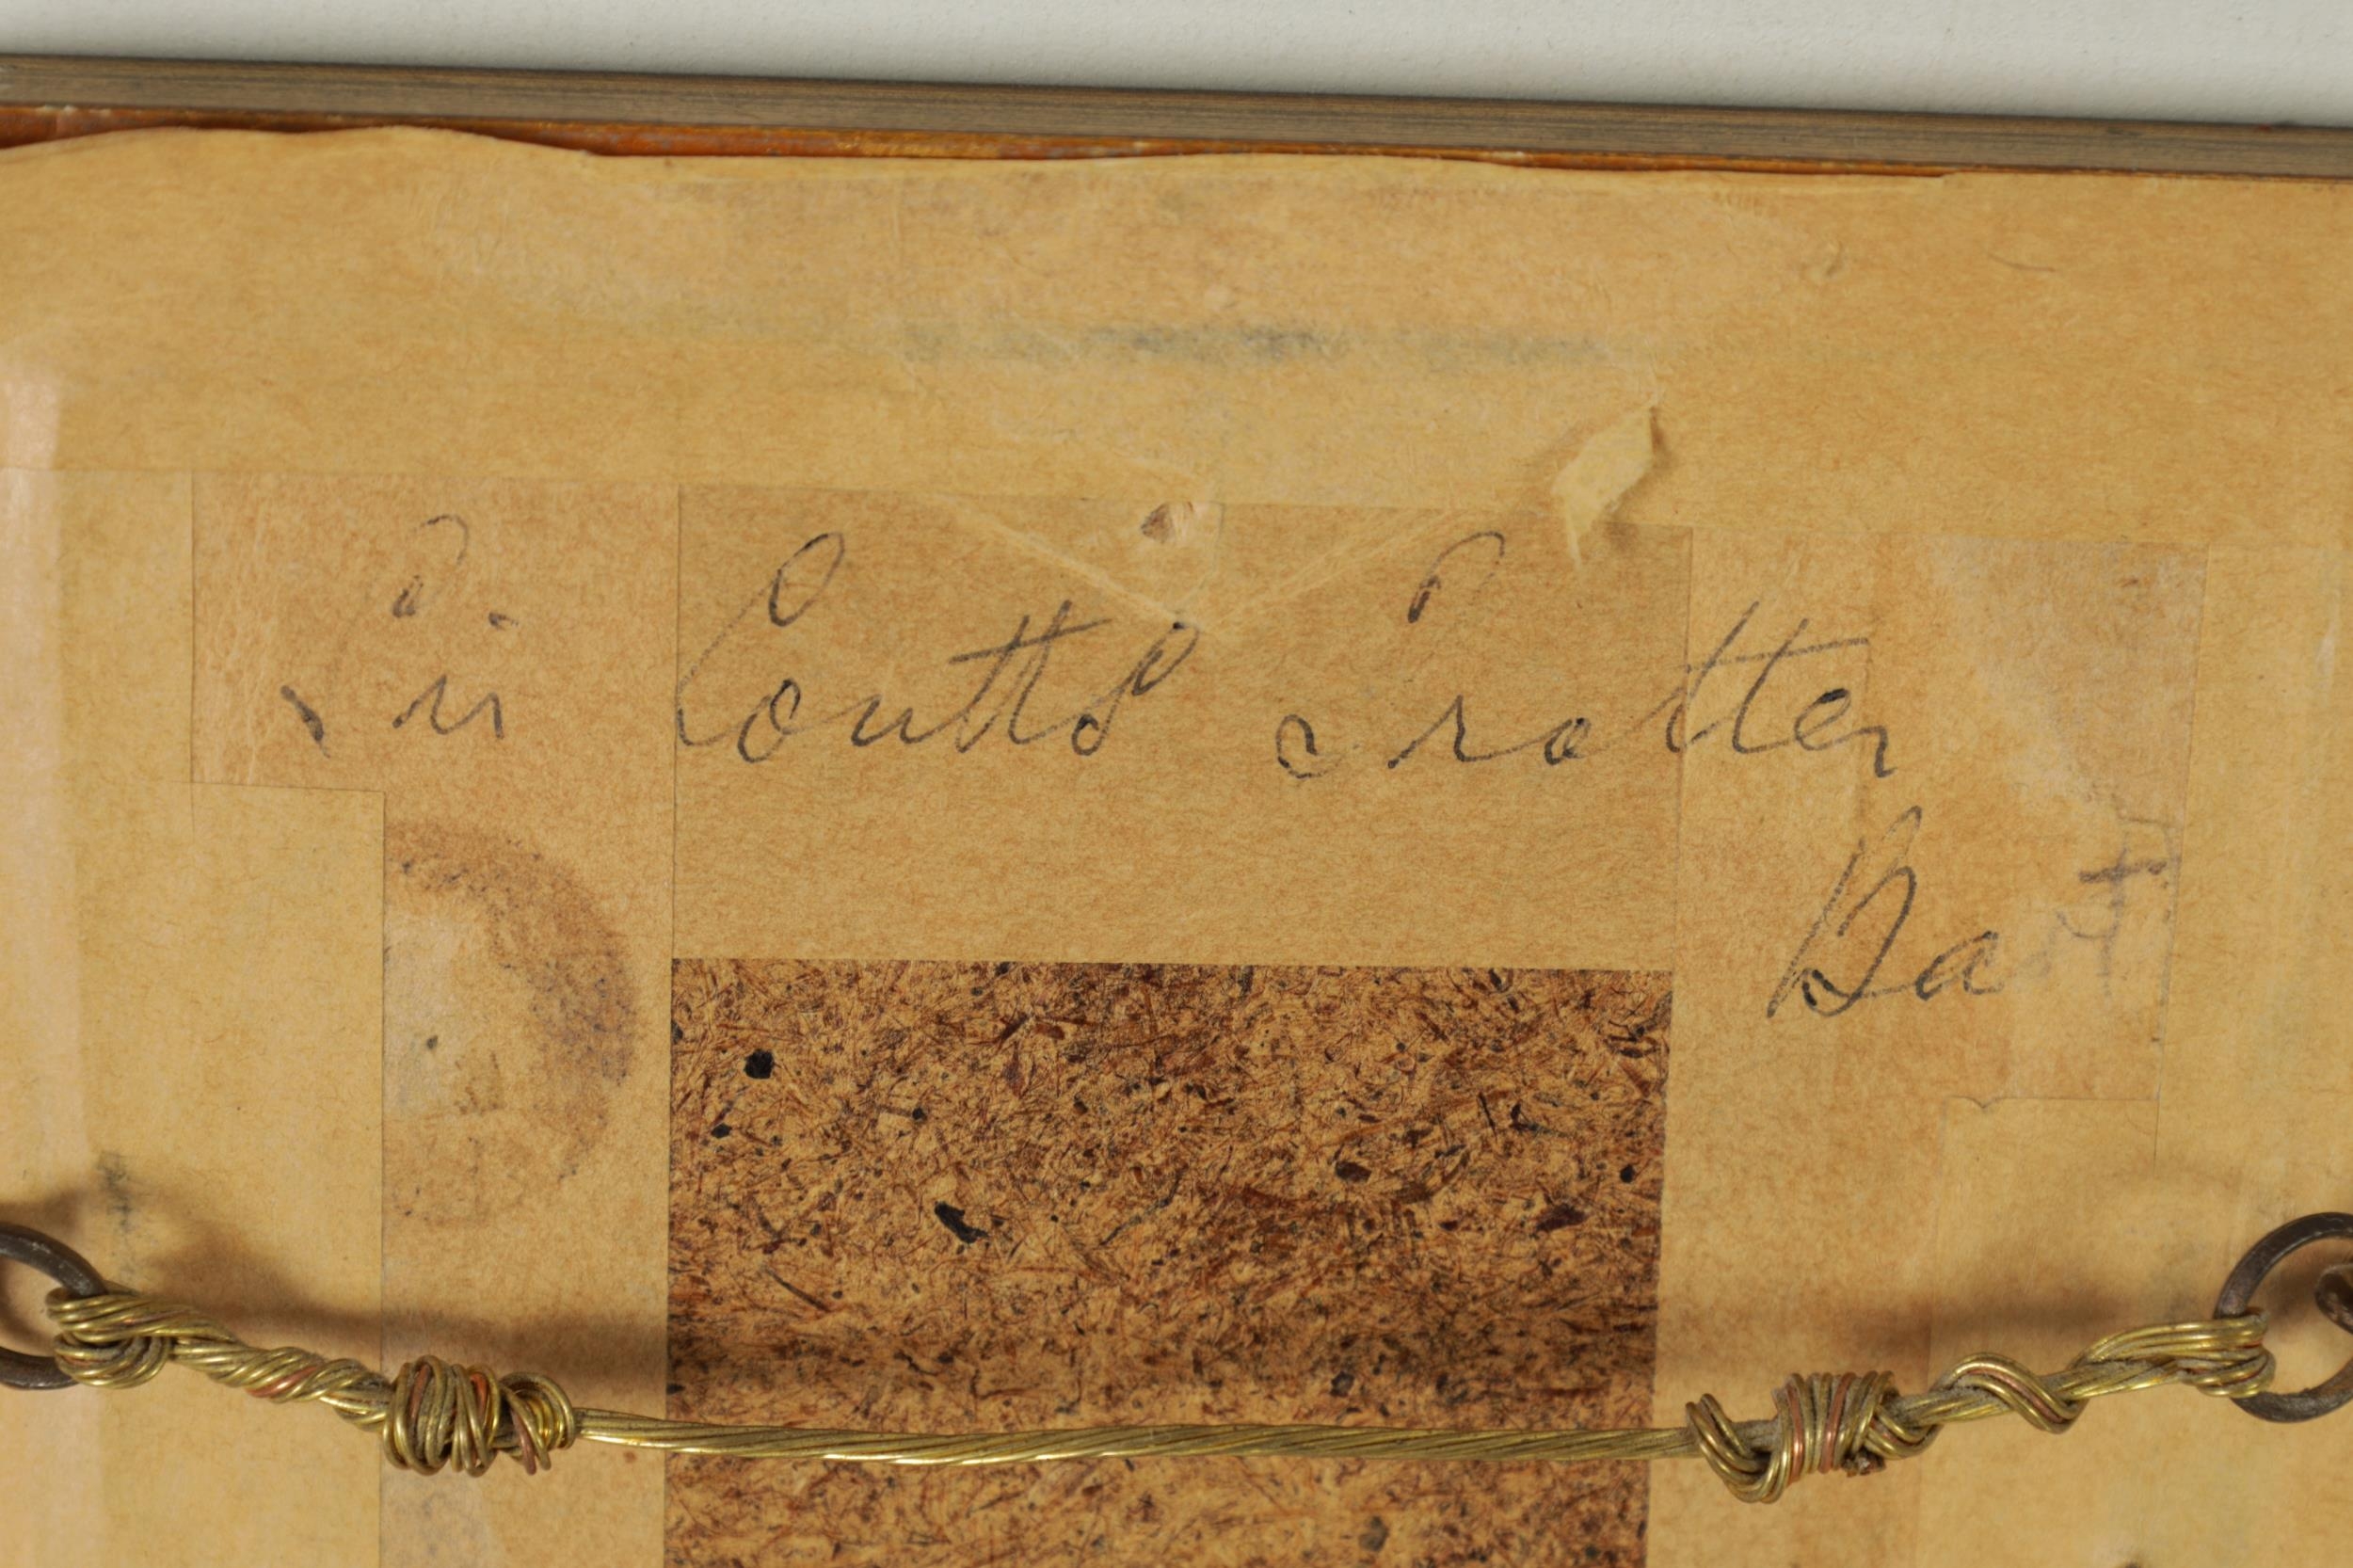 Sir Coutts Trotter
Bart